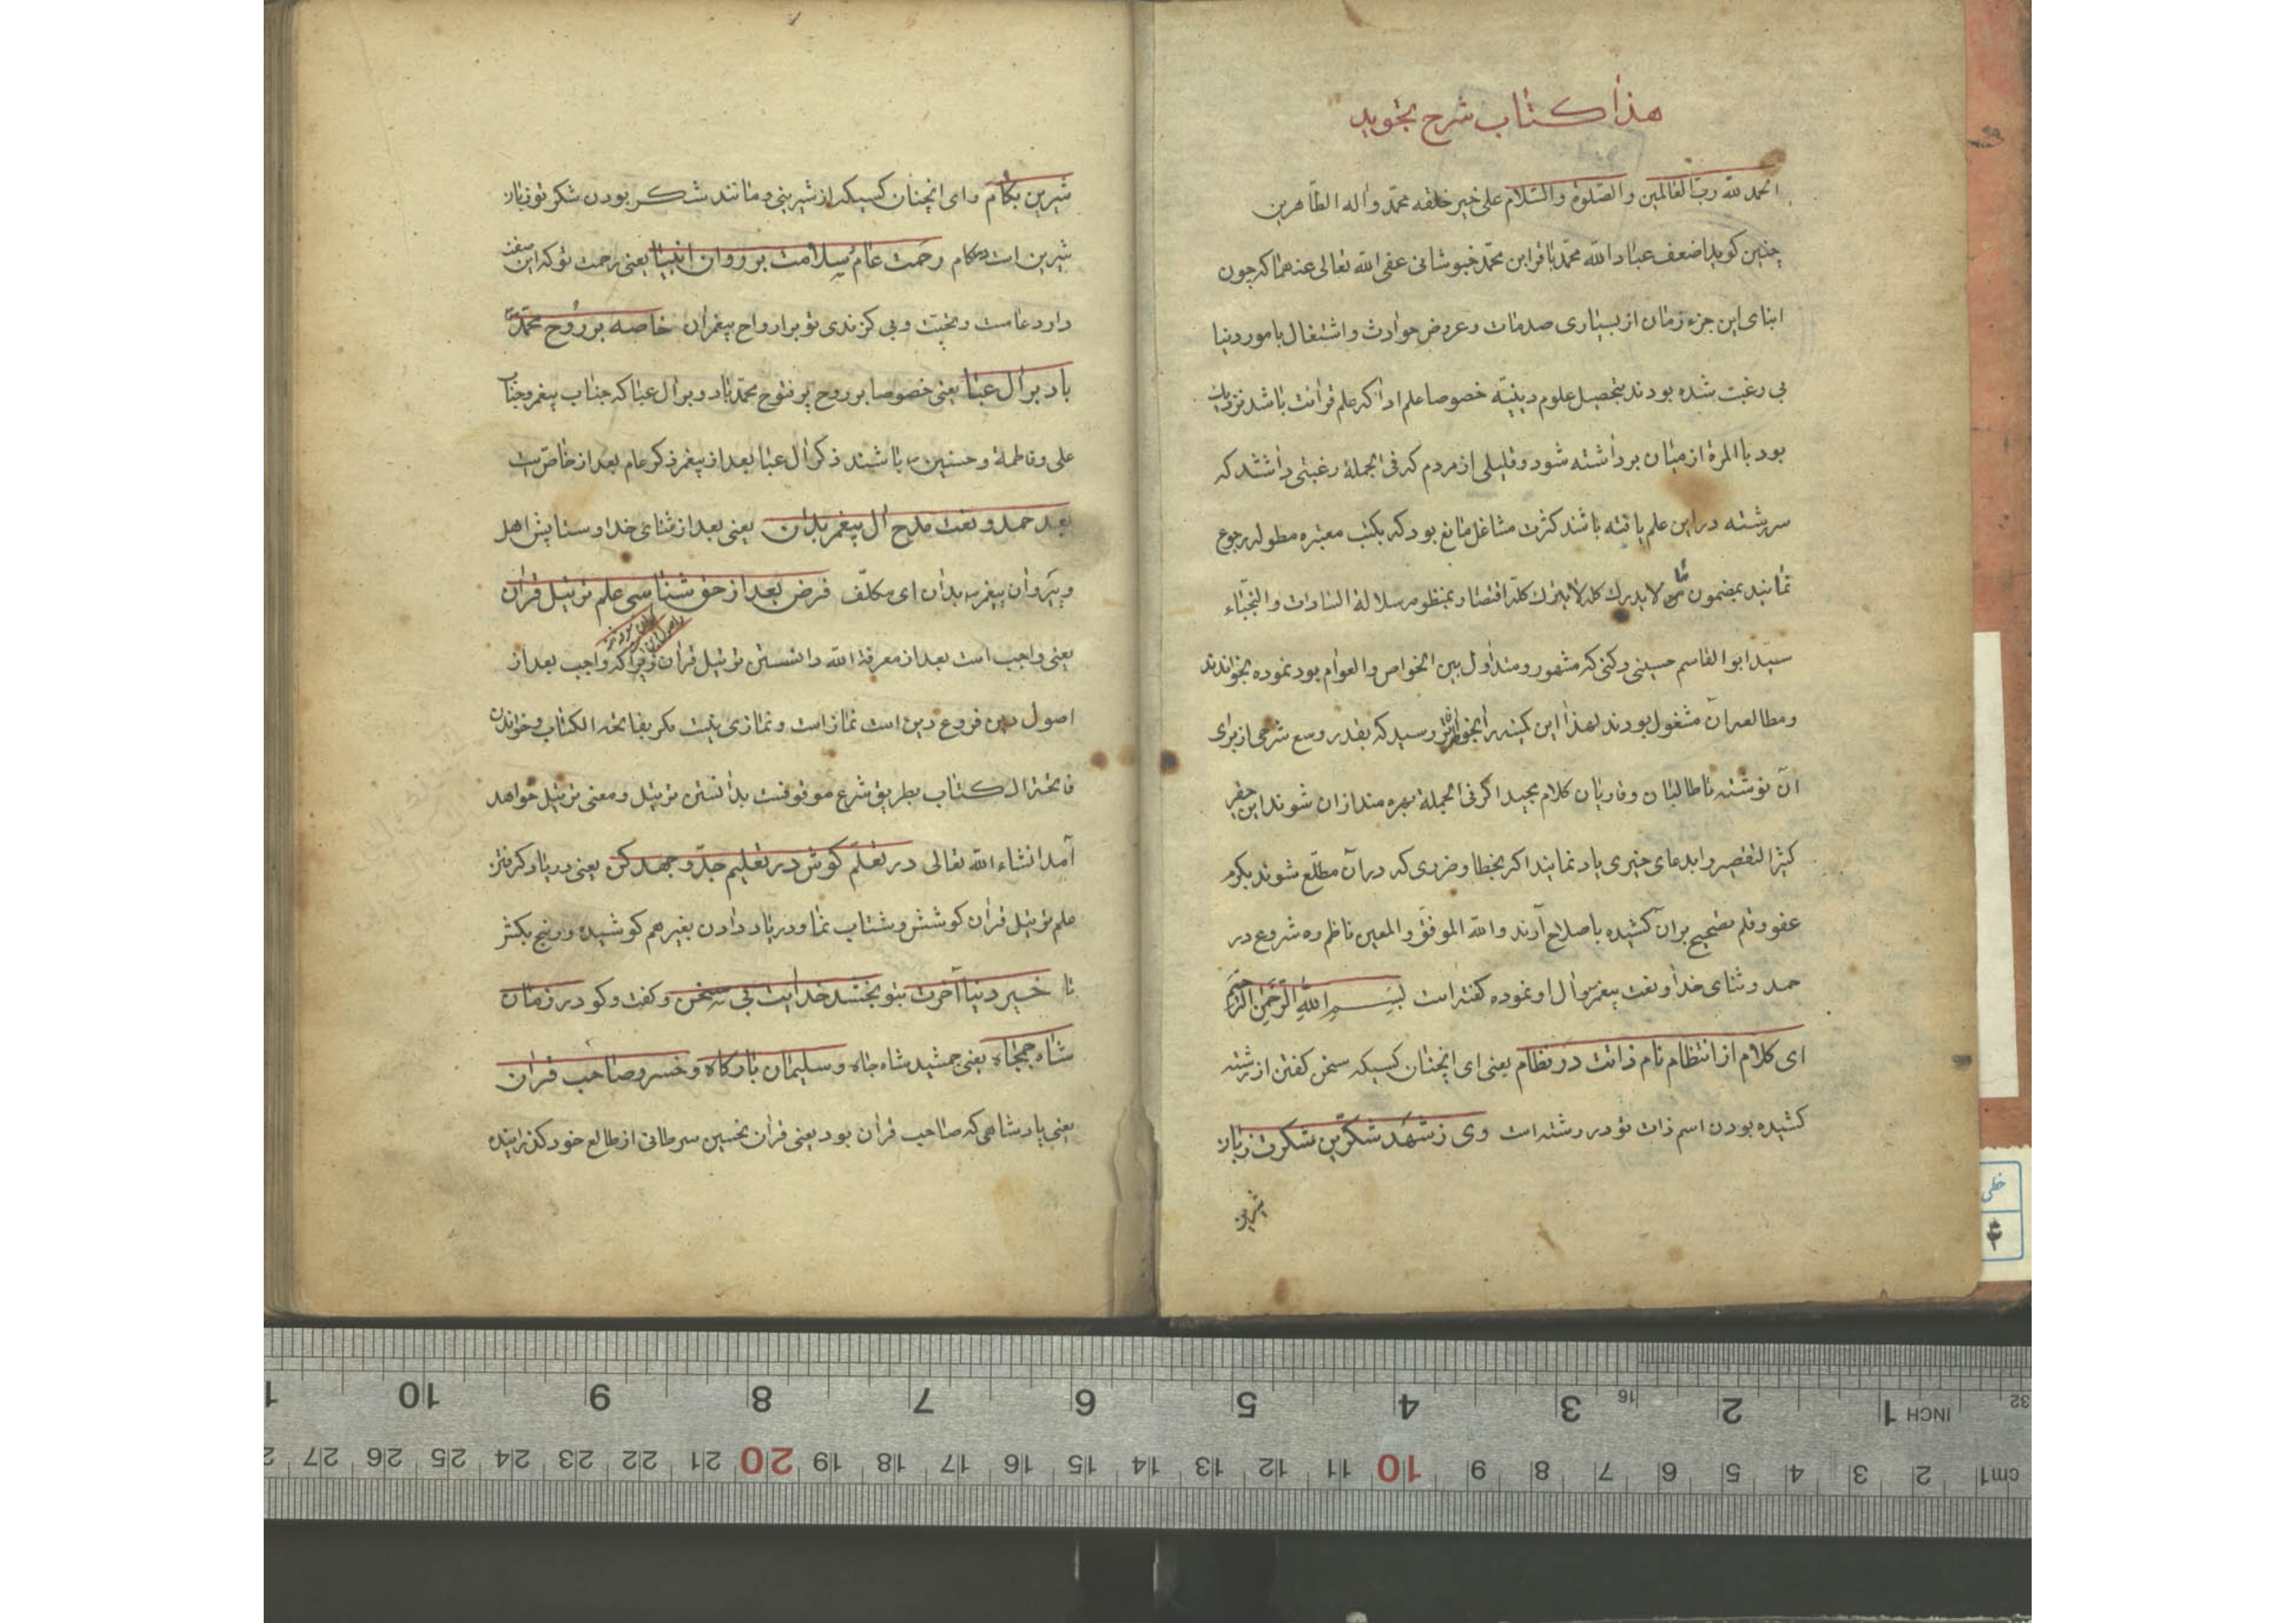 هذا كتاب شرح تجويد
الحمد لله ربّ العالمين والصّلوة والسّلام على خير خلقه محمّد وآله الطّاهرين
چنين كويد اضعف عباد الله محمّد باقر ابن محمّد خبوشانى عفى الله تعالى عنهما كه چون
ابناى اين جزء زمان از بسيارى صدمات وعروض حوادث واشتغال بامور دنيا
بى رغبت شده بودند بتحصيل علوم دينيّه خصوصا علم ادا كه علم قرائت باشد نزديك
بود با المرة از ميان برداشته شود وقليلى از مردم كه فى الجملة رغبتى داشتند كه
سر رشته در اين علم يافته باشند كثرت مشاغل مانع بود كه بكتب معتبره مطوله رجوع
نمايند بمضمون ما لا يدرك كله لا يترك كله اقتصار بمنظومه سلالة السادات والنجباء
سيّد ابو القاسم حسينى دكنى كه مشهور ومتداول بين الخواص والعوام بود نموده بخواندند
ومطالعه آن مشغول بودند لهذا اين كمينه را بخواطر رسيد كه بقدر وسع شرحى از براى
آن نوشته تا طالبان وقاريان كلام مجيد اكر فى الجملة بهره مند ازان شوند اين حقير
كثير التقصير را بدعاى خيرى ياد نمايند اكر بخطا وضررى كه در آن مطّلع شوند بكرم
عفو وقلم تصحيح بر آن كشيده باصلاح آرند والله الموفّق والمعين ناظم ره شروع در
حمد وثناى خدا ونعت پيغمبر وآل او نموده كفته است بسم الله الرّحمن الرّحيم
اى كلام از انتظام نام ذاتت در نظام يعنى اى انچنان كسيكه سخن كفتن از رشته
كشيده بودن اسم ذات تو در رشته است وى ز شهد شكرّين شكرت زبان
شيرين
شيرين بكام واى انچنان كسيكه از شيرينى ومانند شكر بودن شكر تو زبان
شيرين است در كام رحمت عام سلامت بر روان انبيا يعنى رحمت تو كه اين صفت
دارد عامست وتحيّت وبى كزندى تو بر ارواح پيغمبران خاصه بر روح محمّد
باد بر آل عبا يعنى خصوصا بر روح پر فتوح محمّد باد وبر آل عبا كه جناب پيغمبر وجناب
على وفاطمة وحسنين باشند ذكر آل عبا بعد از پيغمبر ذكر عام بعد از خاصّ است
بعد حمد ونعت مدح آل پيغمبر بدان يعنى بعد از ثناى خدا وستايش اهل
وپيروان پيغمبر بدان اى مكلّف فرض بعد از حق شناسى علم ترتيل قران
يعنى واجب است بعد از معرفة الله دانستن ترتيل قران زيرا كه واجب بعد از
اصول دين فروع دين است نماز است ونمازى نيست مكر بفاتحه الكتاب وخواندن
فاتحة الكتاب بطريق شرع موقوفست بدانستن ترتيل ومعنى ترتيل خواهد
آمد انشاء الله تعالى در تعلّم كوش در تعليم جدّ وجهد كن يعنى در ياد كرفتن
علم ترتيل قران كوشش وشتاب نما ودر ياد دادن بغير هم كوشيده ورنج بكش
تا خير دنيا آخرت بتو بخشد خدايت بى سخن وكفت وكو در زمان
شاه جمجاه يعنى جمشيد شاه جاه وسليمان باركاه وخسرو صاحب قران
يعنى پادشاهى كه صاحب قران بود يعنى قران نحسين سرطانى از طالع خود كذرانيده